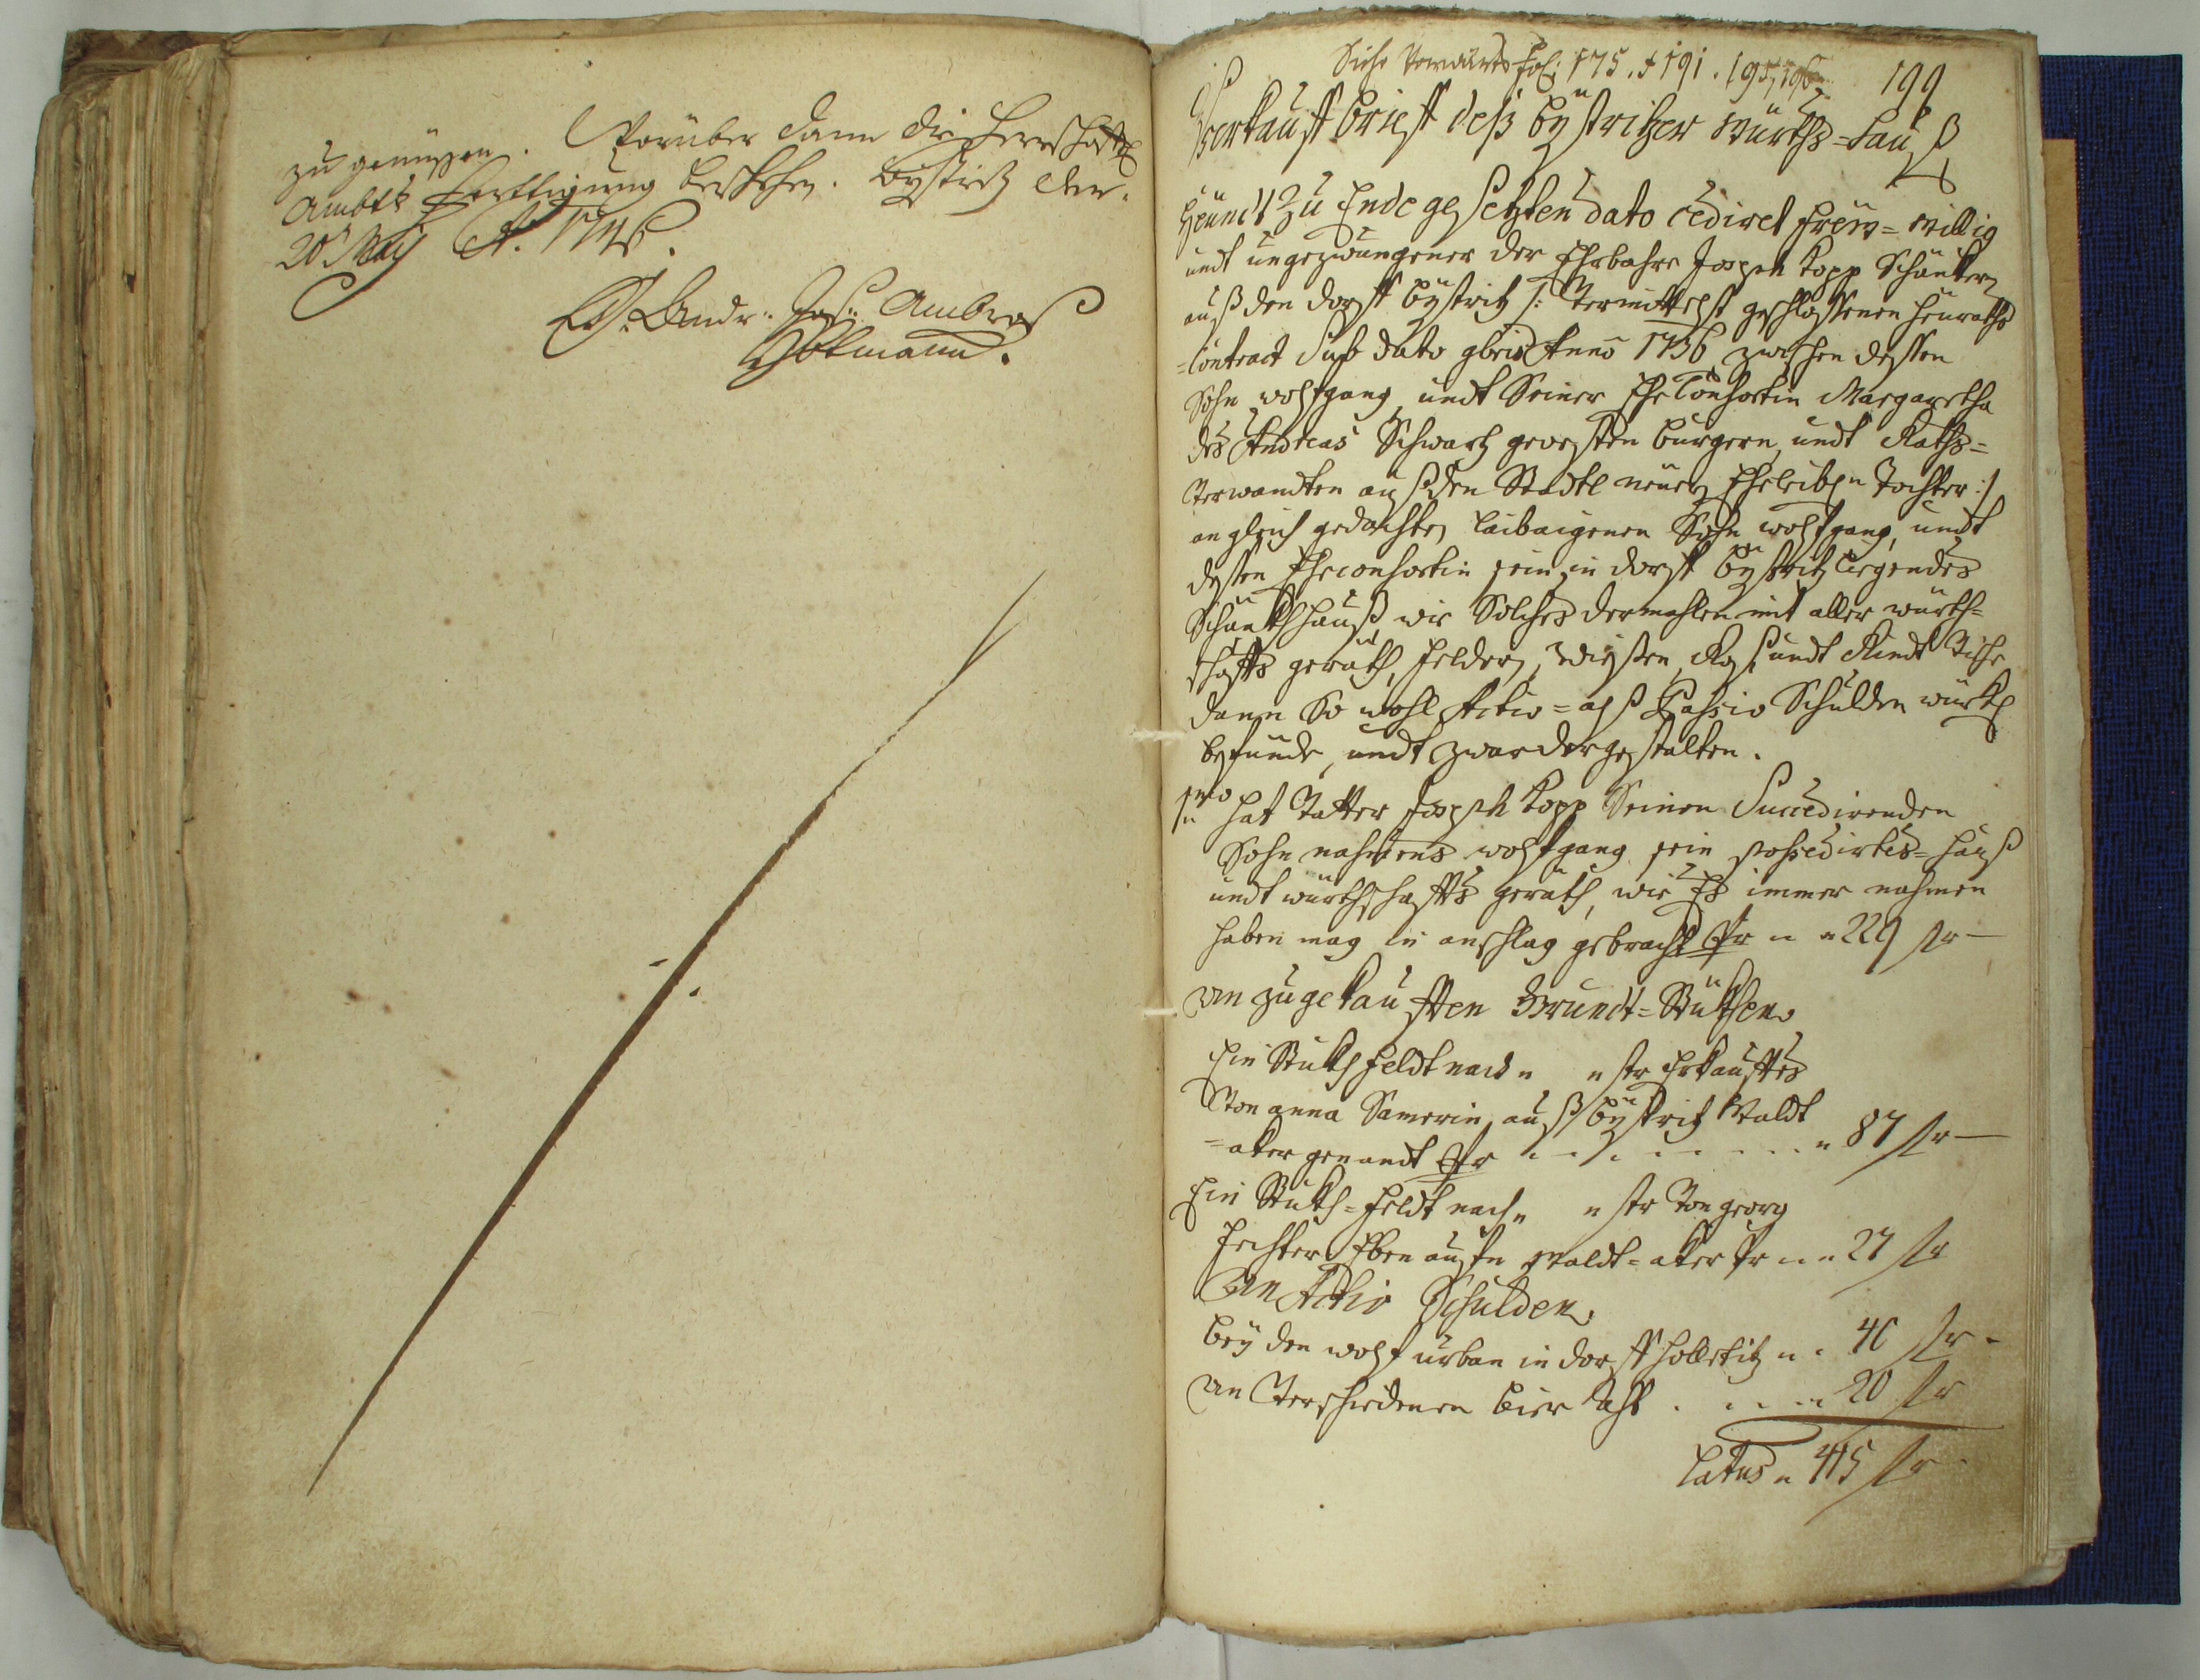 zu genüssen. Worüber dann die herrschafftl
Ambts fertigung beschehen. Bystritz den
20t May A. 1746.
Andr. Jos. Ambros
Hoffmann.
Siehe Vorwärts Fol: 175. + 191. 195, 196
199
Verkauff brieff deß Bystritzer Würths-Hauß
Heundt zu Ende gesetzten dato cediret freÿ-willig
undt ungezwungener der Ehrbahre Joseph Kopp Schänker
auß den dorff Bystritz /: Vermittelst geschlossenen Heuraths
=Contract Sub dato Anno 1736 zwischen dessen
Sohn Wolfgang, undt Seiner Ehe Consortin Margaretha
des Andreas Schwartz gewesten Burgern, undt Raths=
Verwandten auß den Stadtl Eheleiblen Tochter :/
an gleich gedachten Leibaigenen Sohn Wolfgang, undt
dessen Eheconsortin sein in dorff Bystritz liegendes
Schänckhauß, wie Solches dermahlen mit aller würth=
schaffts geräth, felder, Wießen, Roß undt Rindt Viehe
dann So wohl Activ= alß Passiv Schulden würkl
befünde, undt zwar dergestalten.
1mo hat Vatter Joseph Kopp Seinen Succedirenden
Sohn nahmens Wolfgang sein possedirtes=Hauß
undt würthschaffts geräth, wie Es immer nahmen
haben mag in anschlag gebracht Pr " " 229 fr —
An zugekaufften Grundt=Stükhen.
Ein Stükh Feldt nach " " str Erkaufftes
Von Anna Samerin auß Bystritz Waldt
=aker genandt Pr . . . . . . . . . " 87 fr —
Ein Stükh=Feldt nach " " str Von Georg
Eben auf'n Waldt=aker Pr " " " 27 fr
An Activ Schulden.
Bey den Wolf Urban in dorff Holletitz " " 40 fr -
An Verschiedenen Bier Rest . . . . " 20 fr
Latus " 415 fr -